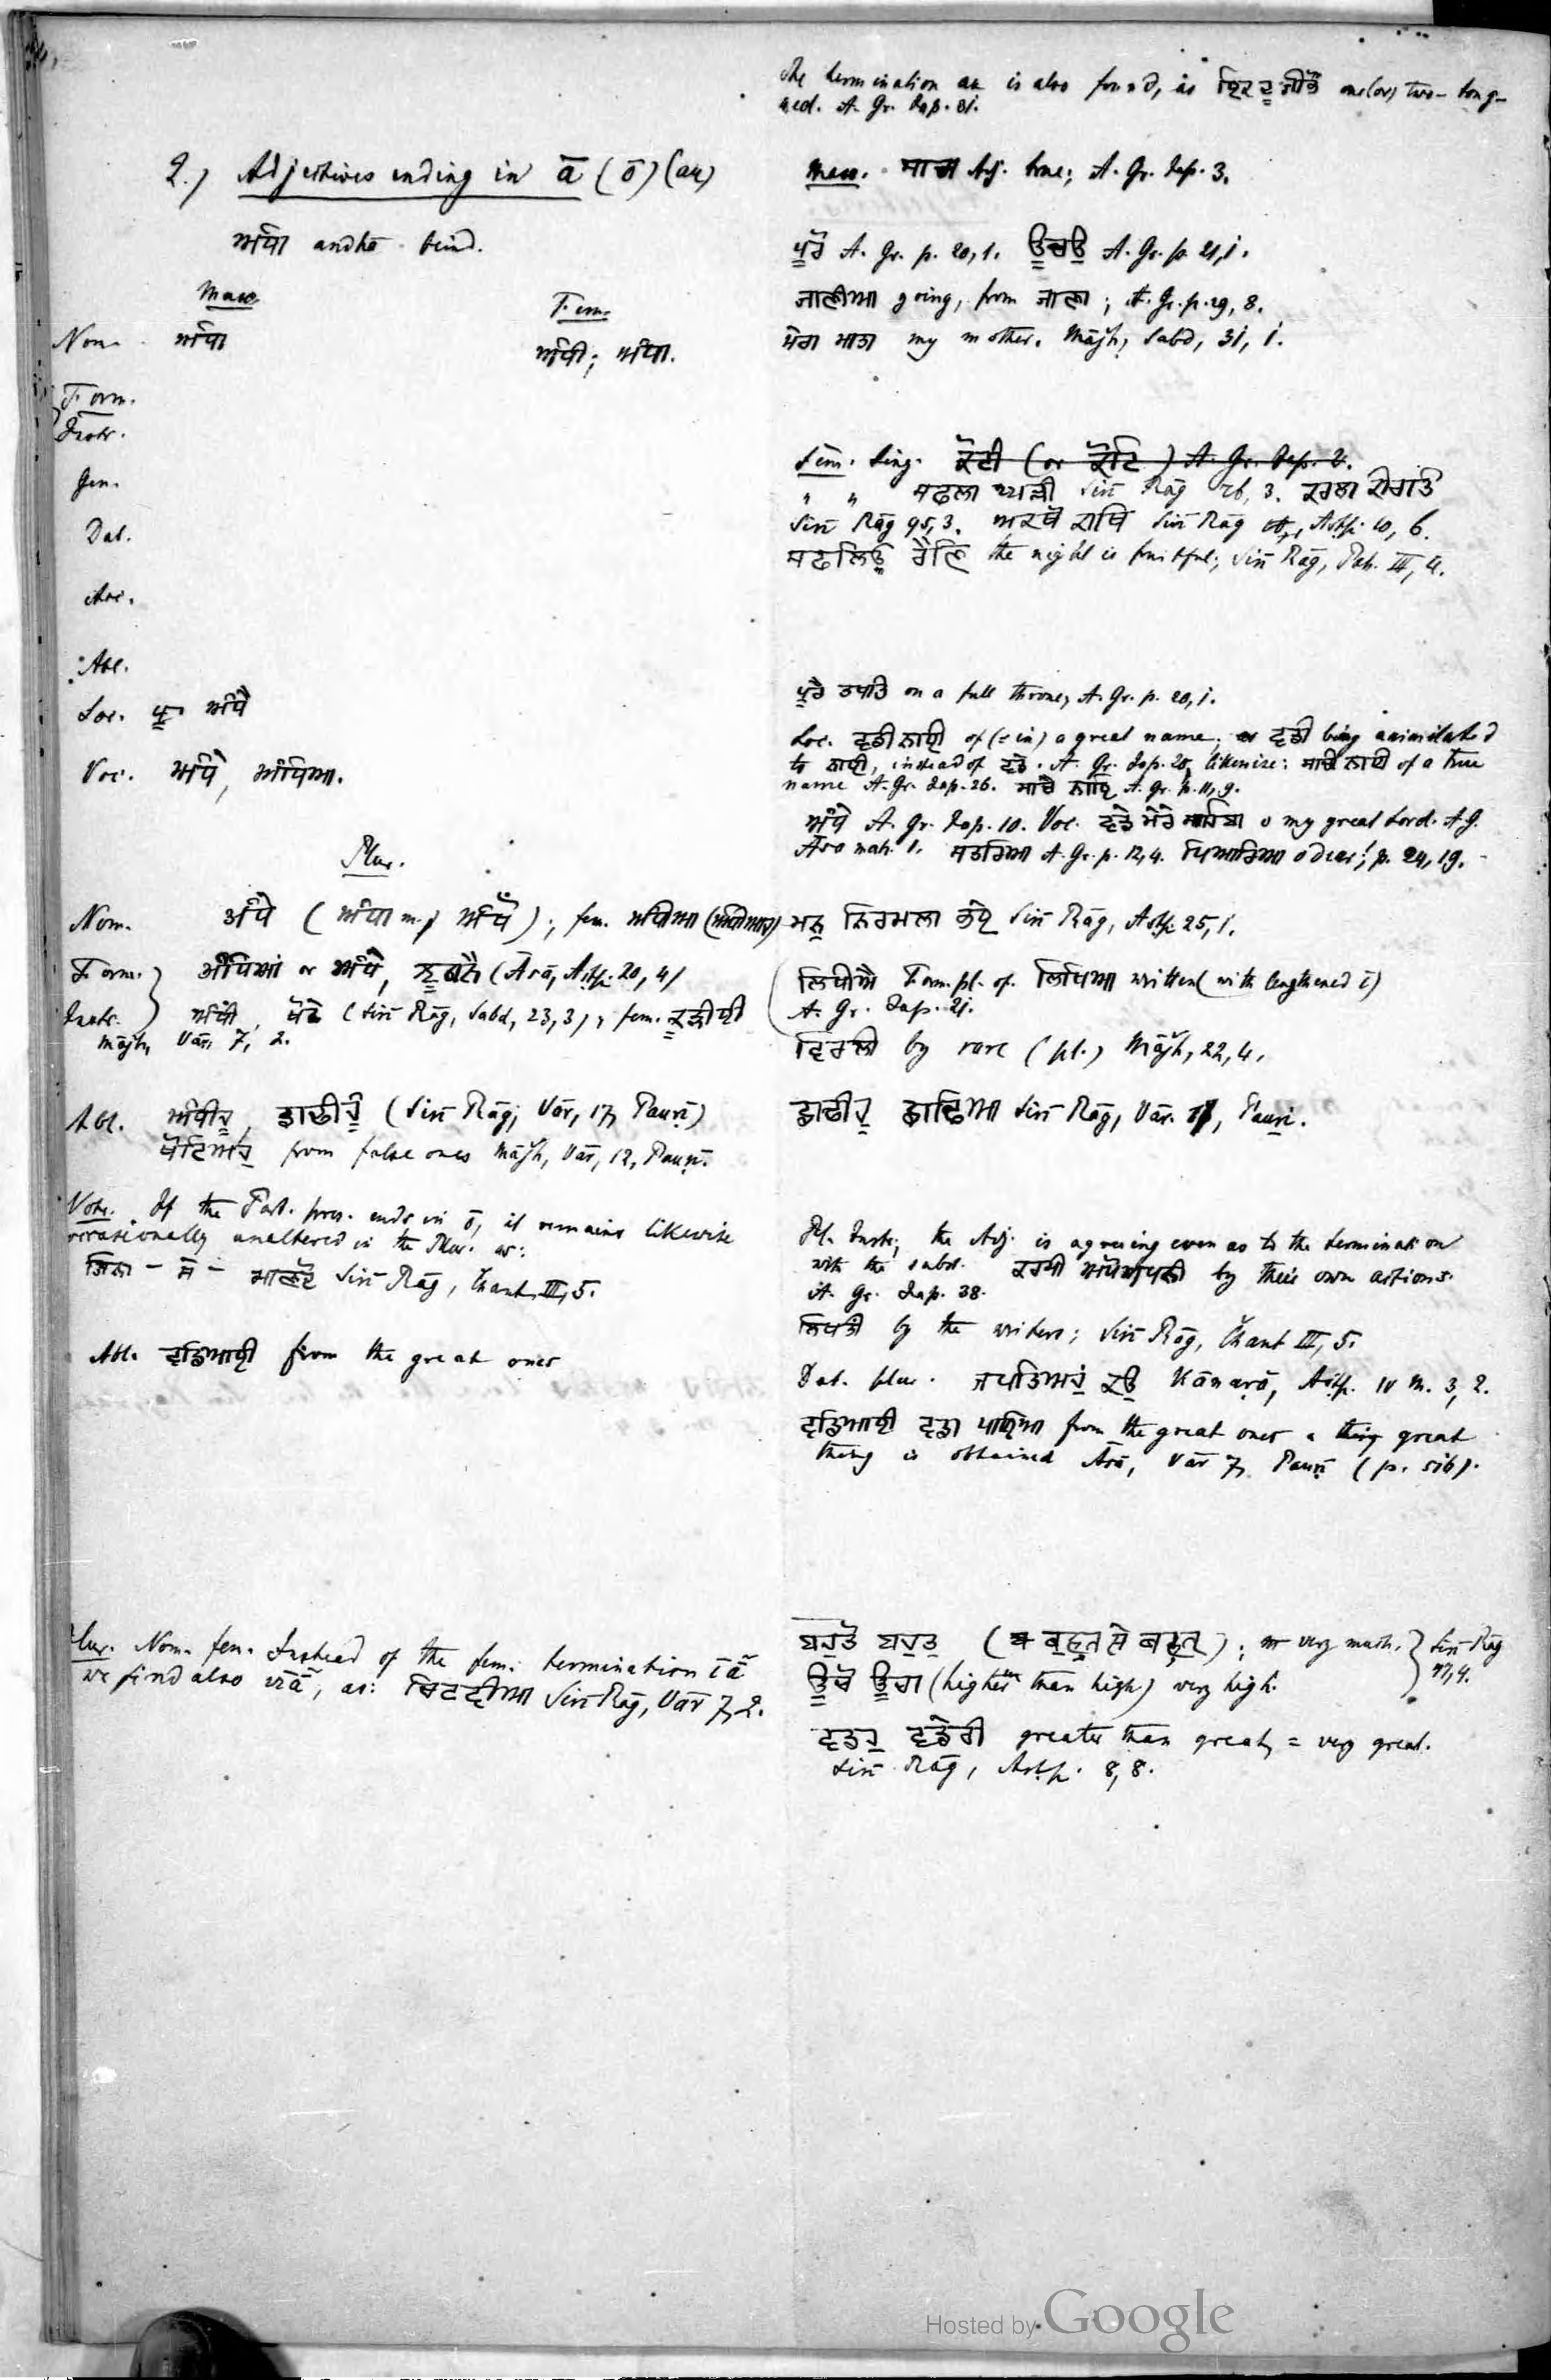 The termination au is also found, as ਇਕਦੂ ਜੀਭੌ one(or) two-tong-
ued. A. Gr. Jap. 31.
2.) Adjectives ending in ā (ō) (au)
ਅੰਧਾ andhā blind.
Masc.
Fem.
Nom. ਅੰਧਾ
ਅੰਧੀ; ਅੰਧਾ.
Form.
Instr.
Gen.
Dat.
Acc.
Abl.
Loc. ਅੰਧੈ
Voc. ਅੰਧੇ, ਅੰਧਿਆ.
Plur.
Nom. ਅੰਧੇ (ਅੰਧਾ m.; ਅੰਧੈਂ); fem. ਅੰਧੀਆ
Form. ਅੰਧਿਆਂ or ਅੰਧੇ, (Āsā, Aṣṭp. 20, 4)
Instr. ਅੰਧੀ, ਖੋਟੇ (Sirī Rāg, Sabd, 23, 3), fem. ਕੂੜੀਈ
Mājh, Vār, 7, 2.
Abl. ਅੰਧੀਹੂ, ਡਾਢੀਹੂੰ (Sirī Rāg, Vār, 17, Pauṛī)
ਖੋਟਿਅਹੁ from false ones Mājh, Vār, 12, Pauṛī.
Note. If the Part. pres. ends in ō, it remains likewise
occasionally unaltered in the Plur. as:
ਜਿਨਾ - ਸੇ - ਮਾਣਦੋ Sirī Rāg, Čhant III, 5.
Abl. ਵਡਿਆਈ from the great ones
Plur. Nom. fem. Instead of the fem. termination īā̃
we find also vīā̃, as: ਚਿਟਵੀਆ Sirī Rāg, Vār 7, 2.
Masc. ਸਾਚਾ Adj. true; A. Gr. Jap. 3.
ਪੂਰੋ A. Gr. p. 20, 1. ਊਚਉ A. Gr. p. 21, 1.
ਜਾਣੀਆ going, from ਜਾਣਾ; A. Gr. p. 29, 8.
ਮੇਰਾ ਮਾਤਾ my mother. Mājh, Sabd, 31, 1.
Fem. Sing. ਕੋਟੀ (or ਕੋਟਿ) A. Gr. Jap. 2.
" " ਸਫਲਾ Sirī Rāg 26, 3.
Sirī Rāg 95, 3. ਅਕਥੋ Sirī Rāg Aṣṭp. 10, 6.
ਸਫਲਿਉ ਰੈਣਿ the night is fruitful; Sirī Rāg, Pah. III, 4.
ਪੂਰੈ ਤਖਤਿ on a full throne, A. Gr. p. 20, 1.
Loc. ਵਡੀ ਨਾਈ of (= in) a great name; ਵਡੀ being assimilated
to ਨਾਈ, instead of ਵਡੇ. A. Gr. Jap. 20, likewise: ਸਾਚੀ ਨਾਈ of a true
name A. Gr. Jap. 26. ਸਾਚੈ ਨਾਇ A. Gr. p. 11, 9.
ਅੰਧੇ A. Gr. Jap. 10. Voc. ਵਡੇ ਮੇਰੇ ਸਾਹਿਬਾ o my great Lord. A. G.
Āsā mah. 1. A. Gr. p. 12, 4. ਪਿਆਰਿਆ o dear! p. 24, 19.
ਮਨੁ ਨਿਰਮਲਾ Sirī Rāg, Aṣṭp. 25, 1.
ਲਿਖੀਐ Form. pl. of ਲਿਖਿਆ written (with lengthened ī)
A. Gr. Jap. 21.
ਵਿਰਲੀ by rare (pl.) Mājh, 22, 4.
ਡਾਢੀਹੁ ਡਾਢਿਆ Sirī Rāg, Vār. Pauṛī.
Pl. Instr., the Adj. is agreeing even as to the termination
with the subst. ਕਰਮੀ ਆਪੋਆਪਣੀ by their own actions.
A. Gr. Jap. 38.
by the writers; Sirī Rāg, Čhant III, 5.
Dat. plur. ਜਪਤਿਅਹੁ ਕਉ Kānaṛā, Aṣṭp. IV M. 3, 2.
ਵਡਿਆਈ ਵਡਾ ਪਾਇਆ from the great ones a thing great
thing is obtained Āsā, Vār 7, Pauṛī (p. 516).
ਬਹੁਤੋ ਬਹੁਤੁ (ਬਹੁਤ ਸੇ ਬਹੁਤੁ); very much. Sirī Rāg
17, 4.
ਊਚੋ ਊਚਾ (higher than high) very high.
ਵਡਹੁ ਵਡੇਰੀ greater than great, = very great.
Sirī Rāg, Aṣṭp. 8, 8.
Hosted by Google